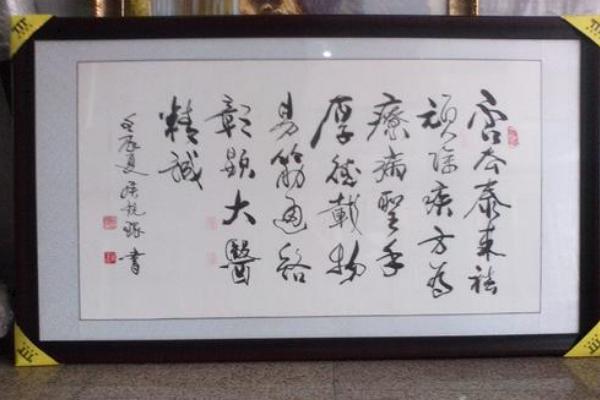 泰来祛
頑除疾方為
療病聖手
厚德載物
易筋通絡
彰顯大醫
精誠
壬辰夏 書